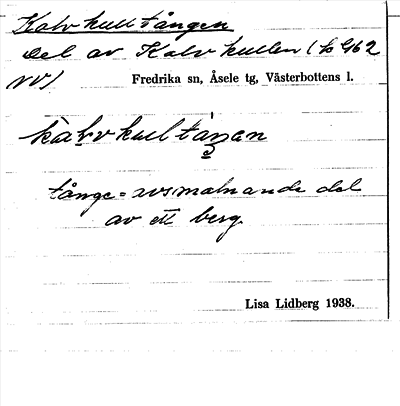 Kalvkulltången
Del av Kalvkullen (b 962
NV)
Fredrika sn, Åsele tg, Västerbottens l.
kalvkultaŋan
tånge = avsmalnande del
av ett berg.
Lisa Lidberg 1938.